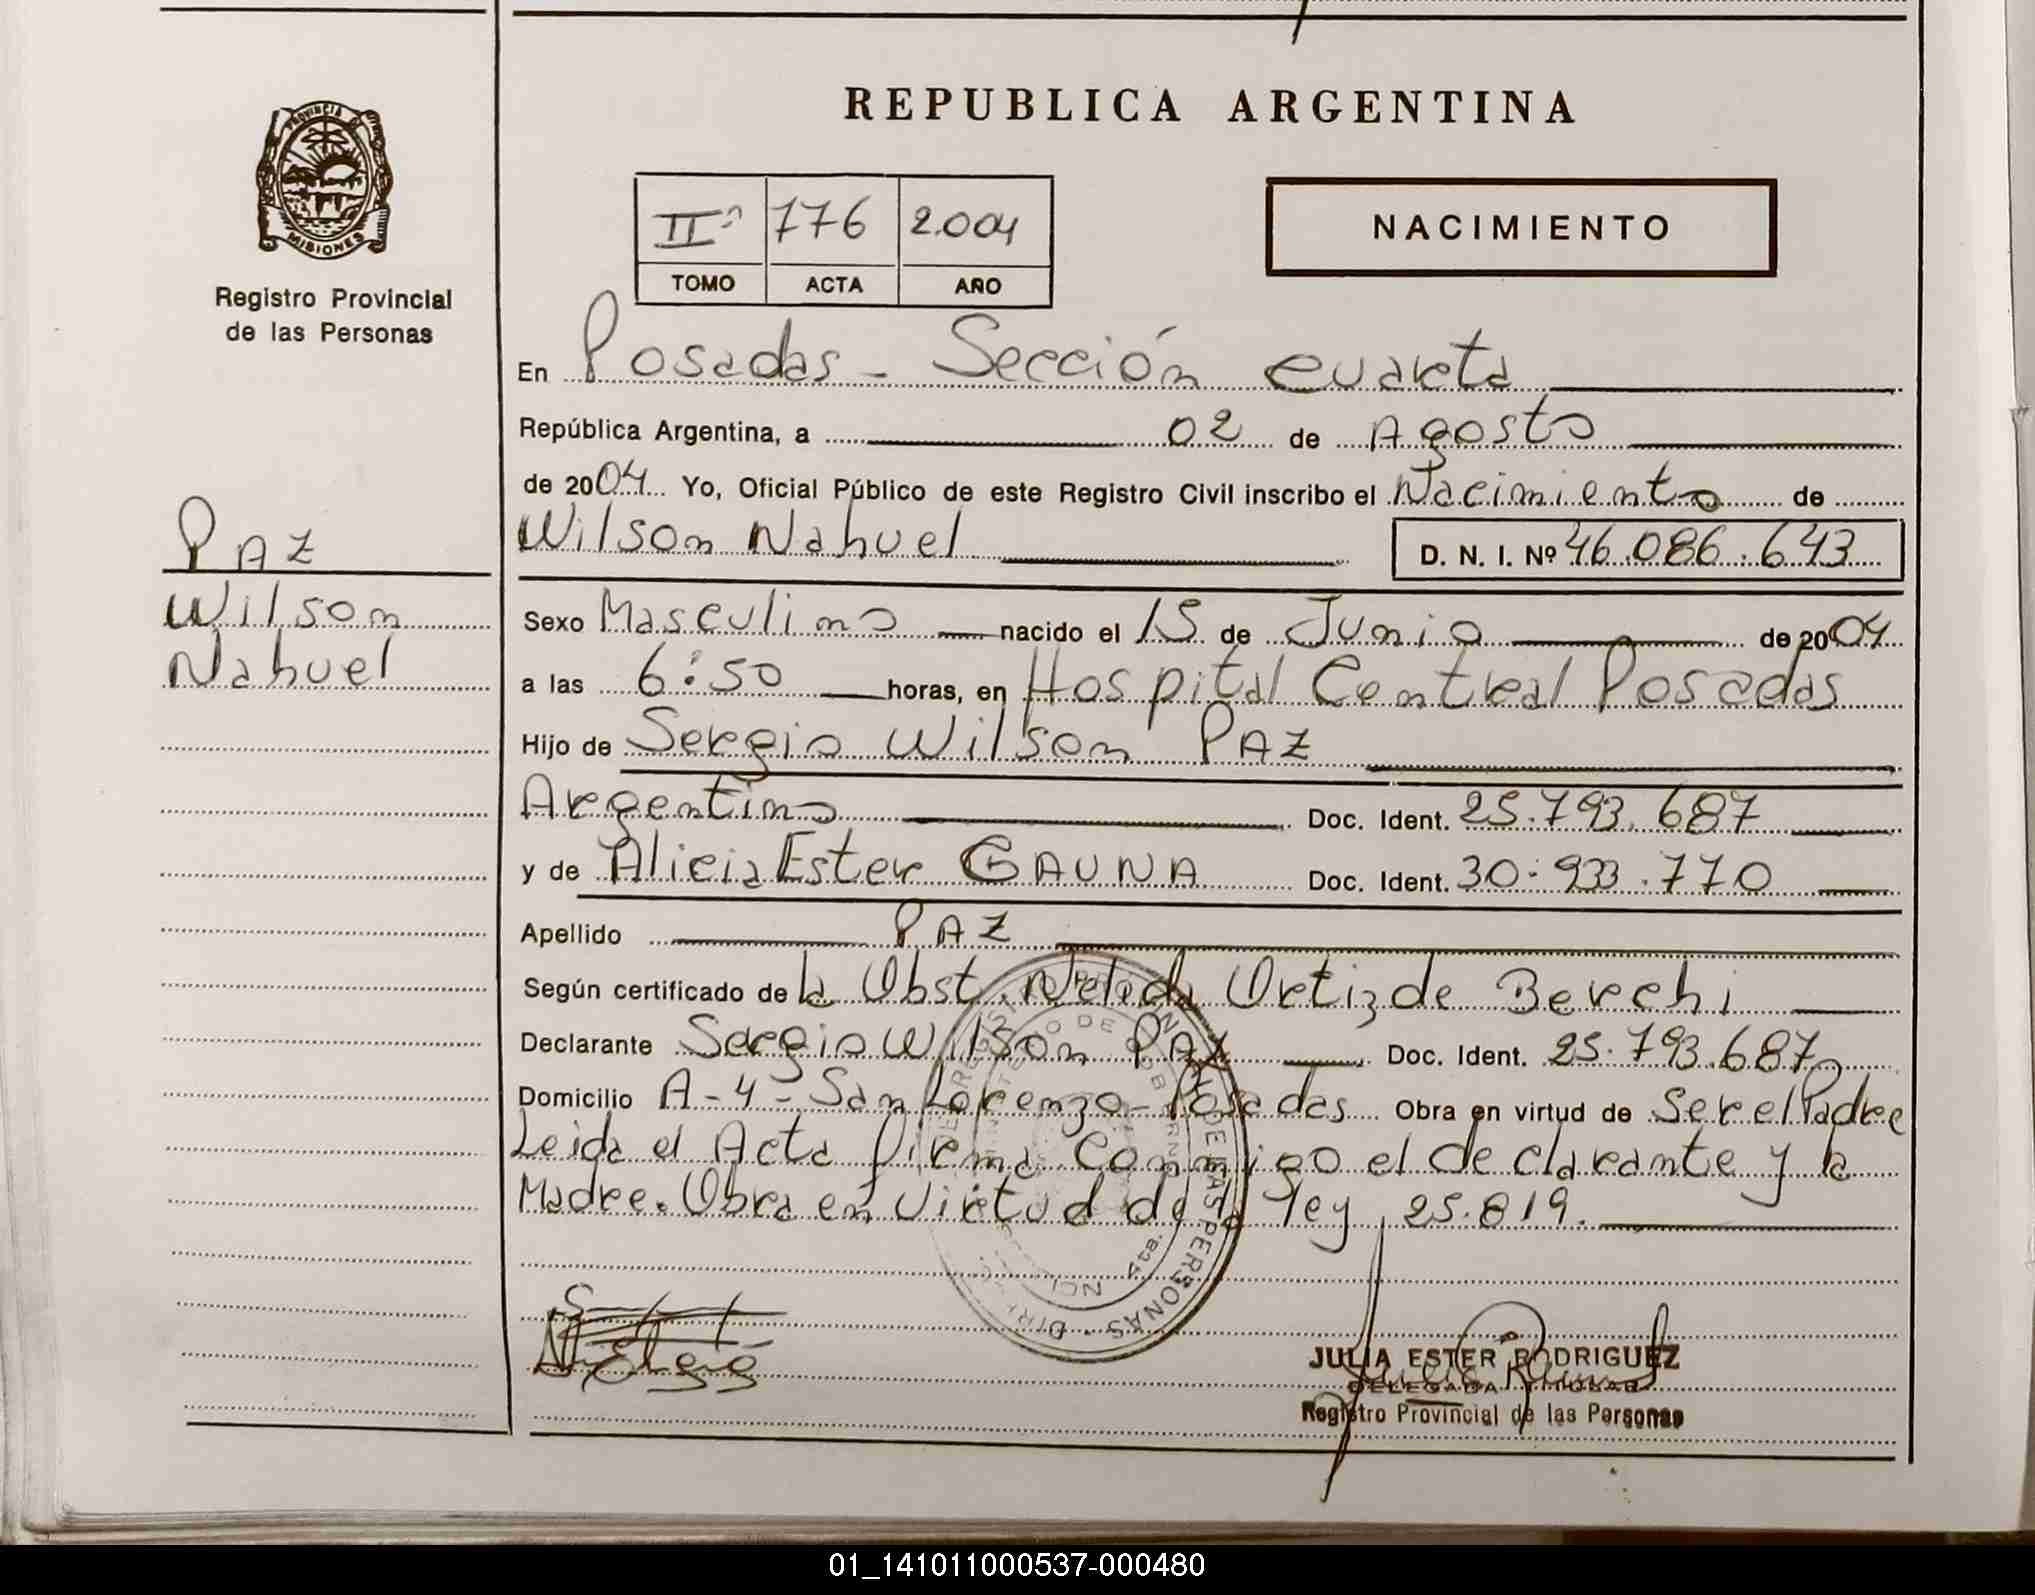 REPUBLICA ARGENTINA
PROVINCIA DE
MISIONES
Registro Provincial
de las Personas
IIº 776 2.004
TOMO ACTA AÑO
NACIMIENTO
En Posadas - Sección cuarta
República Argentina, a 02 de Agosto
de 2004 Yo, Oficial Público de este Registro Civil inscribo el Nacimiento de
Wilson Nahuel D. N. I. Nº 46.086.643
PAZ
Wilson
Nahuel
Sexo Masculino nacido el 15 de Junio de 2004
a las 6:50 horas, en Hospital Central Posadas
Hijo de Sergio Wilson PAZ
Argentino Doc. Ident. 25.793.687
y de Alicia Ester GAUNA Doc. Ident. 30.933.770
Apellido PAZ
Según certificado de la Obst. Nelida Ortiz de Berchi
Declarante Sergio Wilson PAZ Doc. Ident. 25.793.687
Domicilio A-4- San Lorenzo - Posadas Obra en virtud de Ser el Padre
Leida el Acta Firma Conmigo el declarante y la
Madre. Obra en virtud de la ley 25.819.
DE LAS PERSONAS
4ta.
JULIA ESTER RODRIGUEZ
DELEGADA TITULAR
Registro Provincial de las Personas
01_141011000537-000480